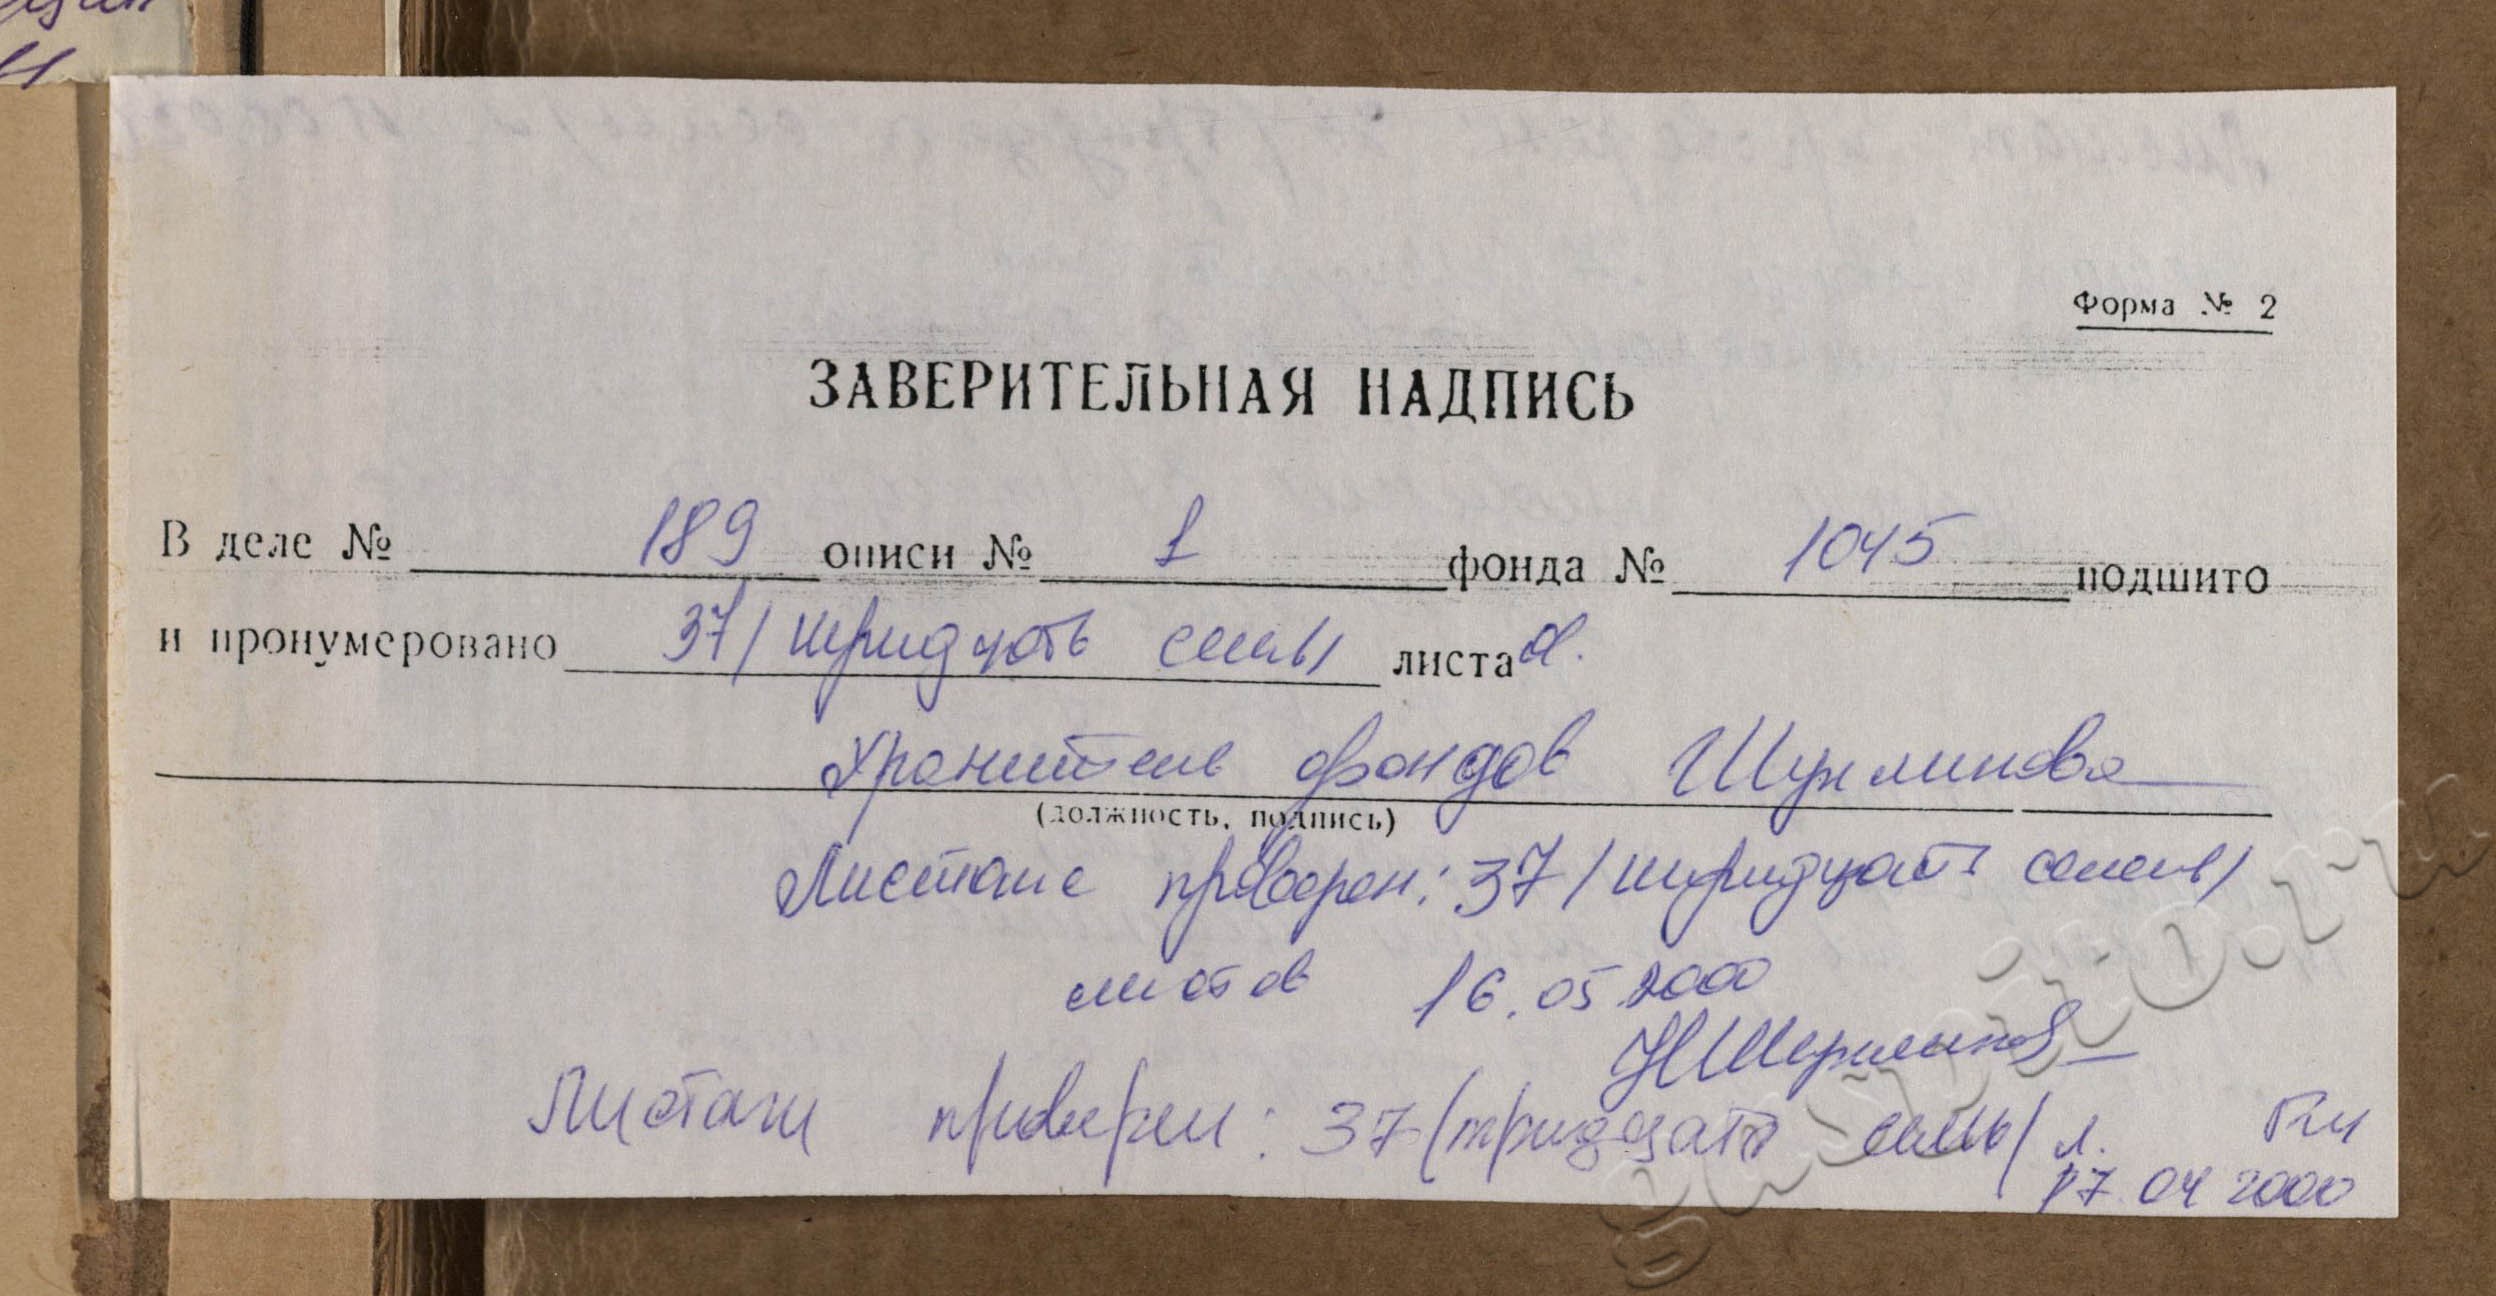 Форма № 2
ЗАВЕРИТЕЛЬНАЯ НАДПИСЬ
В деле № 189 описи № 1 фонда № 1045 подшито
и пронумеровано 37/тридцать семь/ листа
Хранитель фондов
(должность, подпись)
Листаж проверен: 37/тридцать семь/
листов 16.05.2000
Листаж проверен: 37/тридцать семь/ л.
17.04.2000